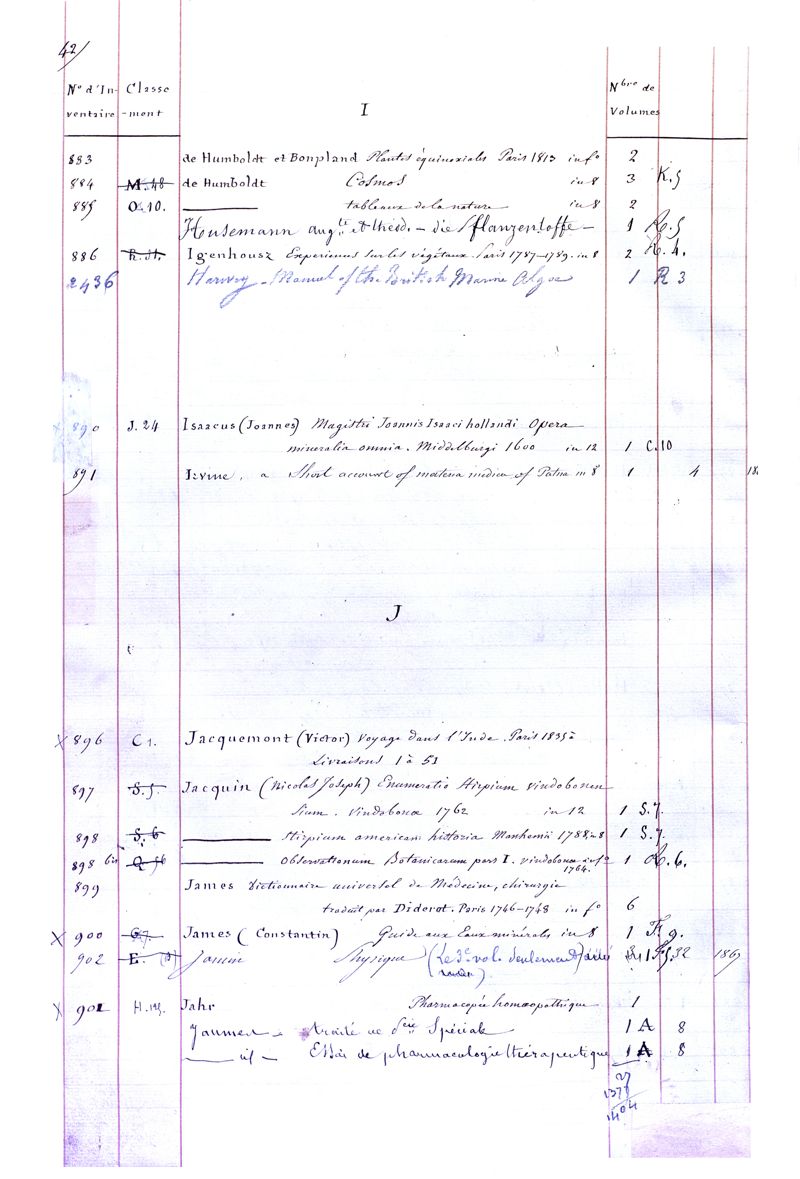 42/
N° d'In- Classe Nbre de
ventaire -ment I Volumes
883 de Humboldt et Bonpland Plantes équinoxiales Paris 1813 in f° 2
884 M.48 de Humboldt Cosmos in 8 3 K.5
885 O.10. ——— tableaux de la nature in 8 2
Husemann augte et theod. — die Pflanzenstoffe — 1 R.5
886 R.St. Igenhousz Experiences sur les végétaux. Paris 1787–1789. in 8 2 R.4.
2436 Harvey - Manual of the British Marine Algae 1 R 3
x 890 J.24 Isaacus (Joannes) Magistri Joannis Isaaci hollandi Opera
mineralia omnia. Middelburgi 1600 in 12 1 C.10
891 Irvine, a Short account of materia medica of Patna in 8 1 4 18
J
x 896 C 1. Jacquemont (Victor) Voyage dans l'Inde. Paris 1835 à
Livraisons 1 à 51
897 S.5. Jacquin (Nicolas Joseph) Enumeratio Stirpium vindobonen
sium. Vindobonæ 1762 in 12 1 S.7.
898 S.6 ——— Stirpium americanæ historia Manhemii 1788 in 8 1 S.7.
898 bis ——— Observationum Botanicarum pars I. vindobonæ in f° 1 R.6.
1764.
899 James Dictionnaire universel de Médecine, chirurgie
traduit par Diderot. Paris 1746–1748 in f° 6
x 900 G7. James (Constantin) Guide aux Eaux minérales in 8 1 F 9.
902 E. Jamin Physique (Le 3e vol. seulement) 1 32 1869
x 901 H. Jahr Pharmacopée homœopathique 1
Jaumes - traité de Spéciale 1 A 8
——— id — Essai de pharmacologie thérapeutique 1 A 8
27
1377
1404